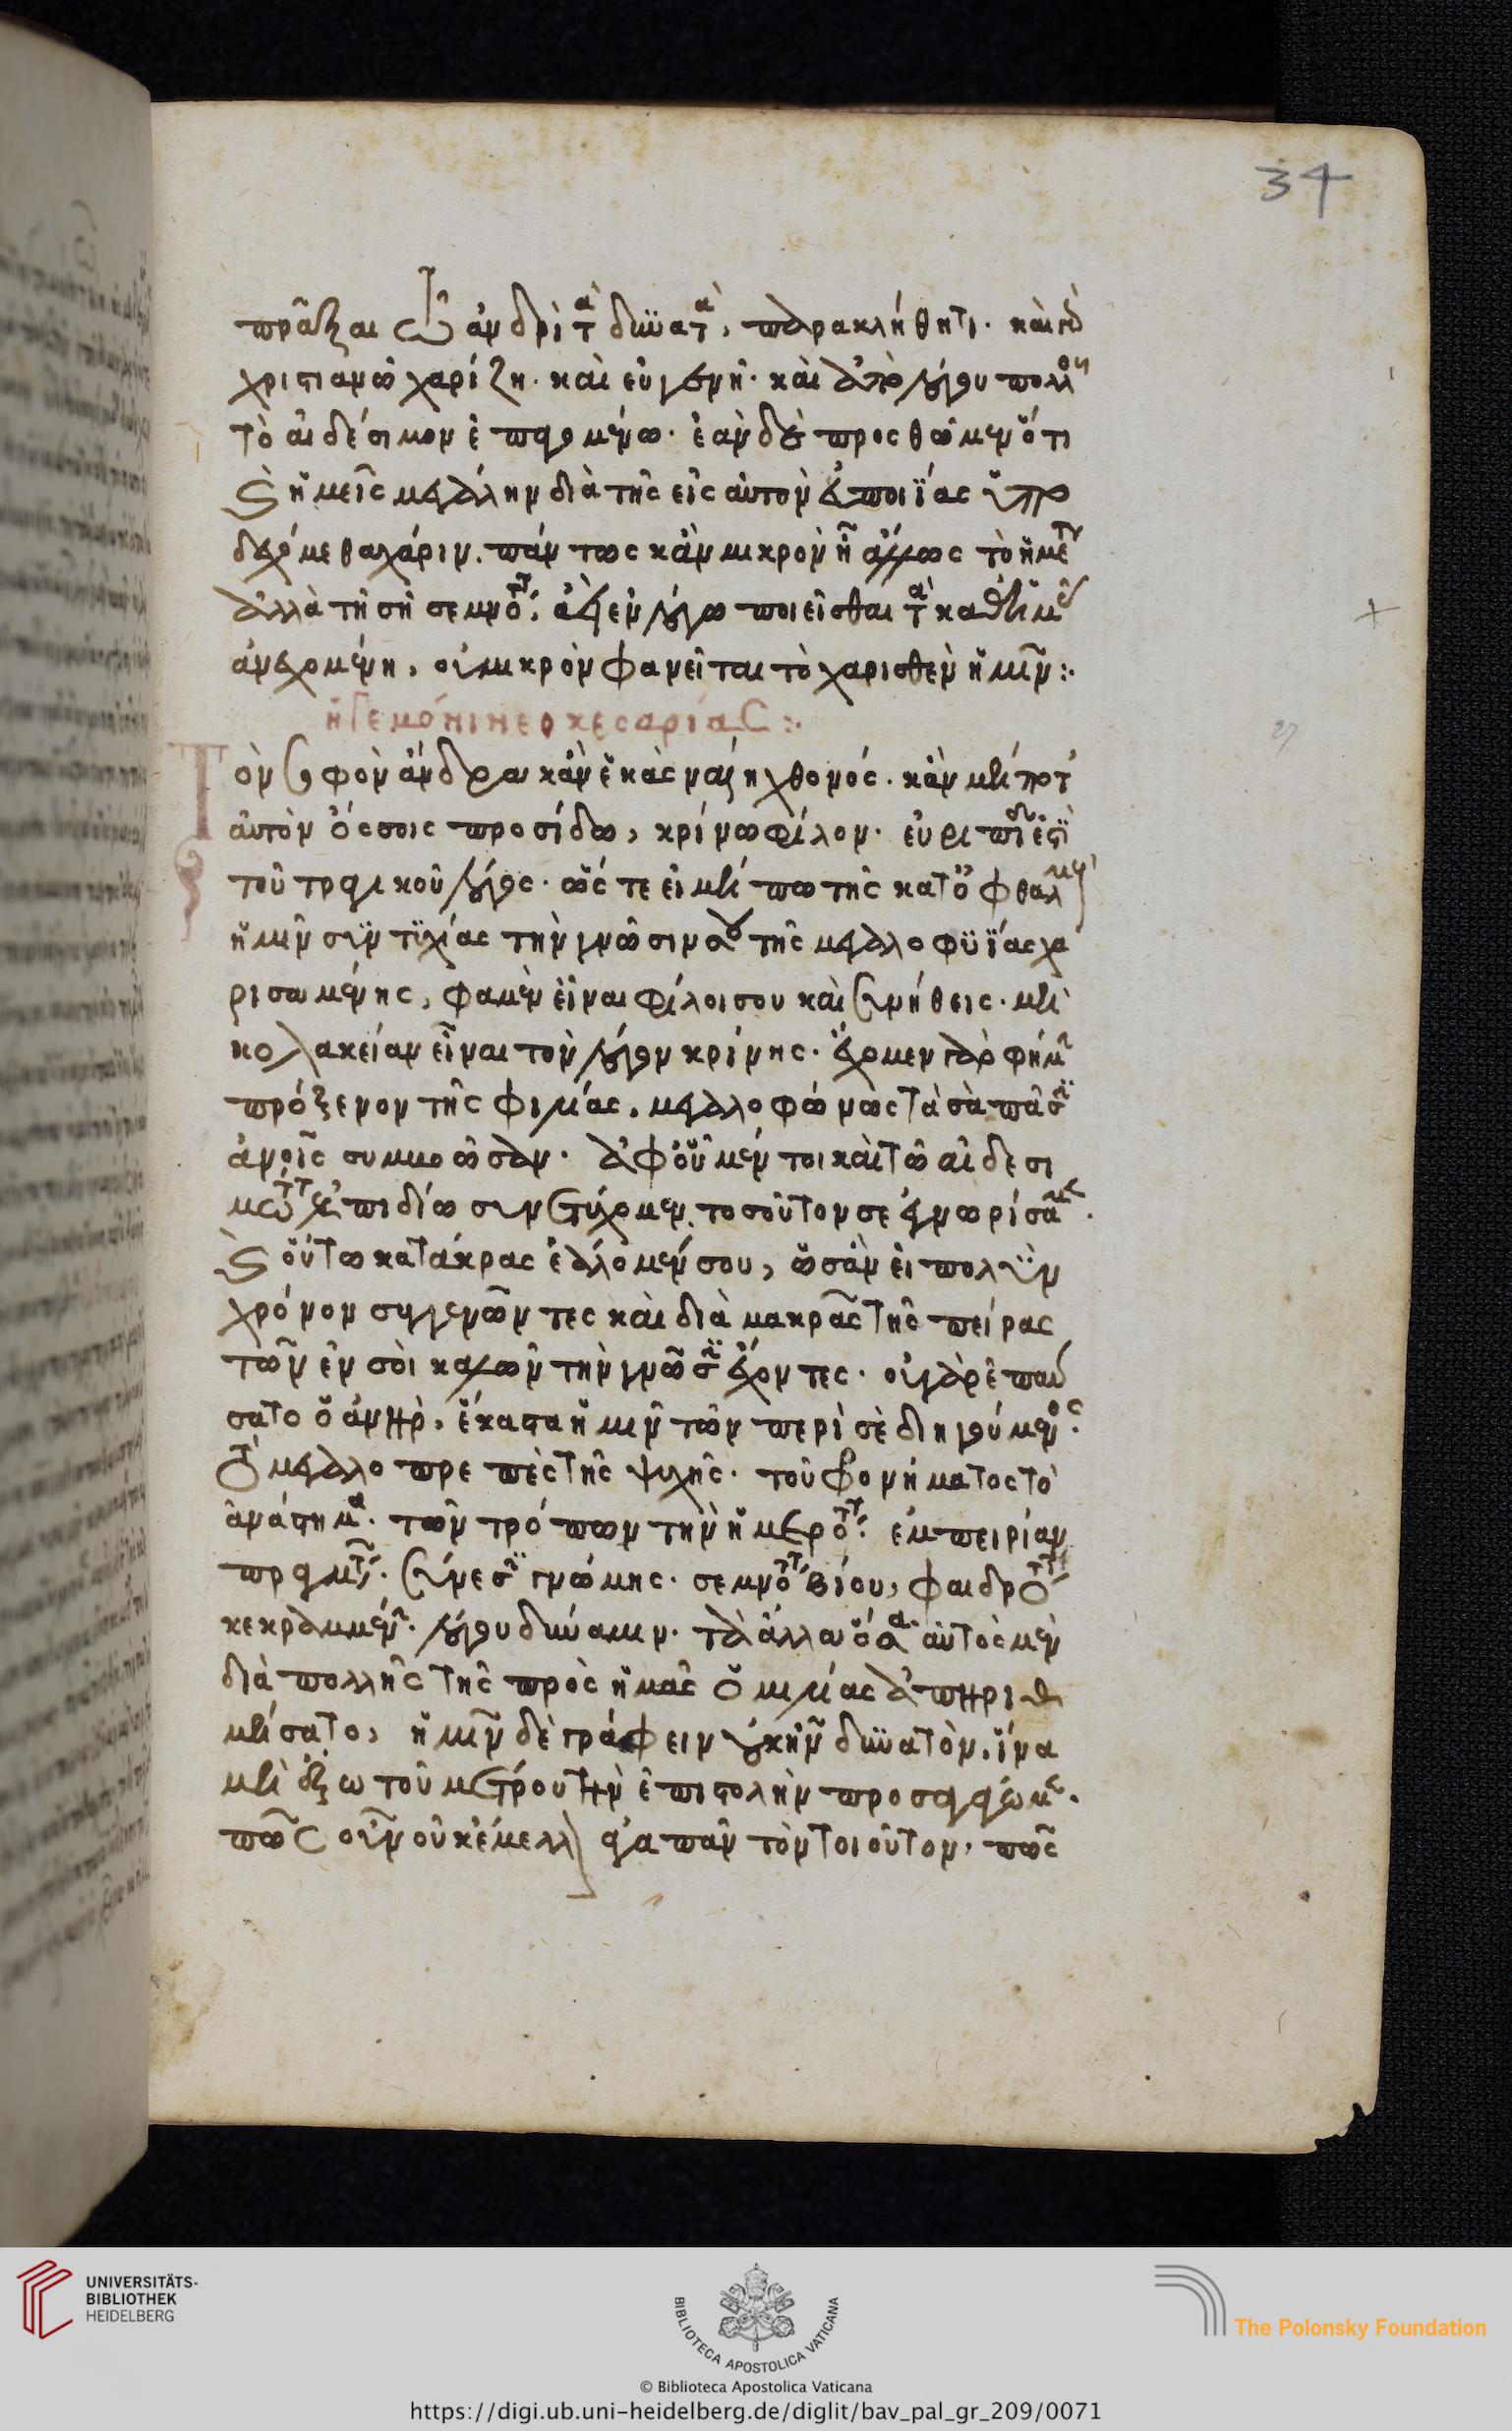 34
πρᾶξαι τῷ ἀνδρὶ τὰ δυνατὰ, παρακλήθητι· καὶ
χριστιανῷ χαρίζη· καὶ εὐγενῆ· καὶ ἀπὸ λόγου πολλοῦ
τὸ αἰδέσιμον ἐπαγομένω· ἐὰν δὲ προσθῶμεν ὅτι
καὶ ἡμεῖς μεγάλην διὰ τῆς εἰς αὐτὸν εὐποιΐας ὑπο
δεχόμεθα χάριν. πάντως κἂν μικρὸν ἦ ἄλλως τὸ ἡμέτερον
ἀλλὰ τῆ σῆ σεμνότητι ἀεὶ ἐν λόγω ποιεῖσθαι τὰ καθ' ἡμᾶς
ἀνεχομένη, οὐ μικρὸν φανεῖται τὸ χαρισθὲν ἡμῖν:·
ἡγεμόνι νεοκεσαρίας:·
Τὸν σοφὸν ἄνδρα κἂν ἑκὰς ναίη χθονός· κἂν μήποτ'
αὐτὸν ὄσσοις προσίδω, κρίνω φίλον· εὐριπίδου ἐστὶ
τοῦ τραγικοῦ λόγος· ὥστε εἰ μήπω τῆς κατ' ὀφθαλμοὺς
ἡμῖν συντυχίας τὴν γνῶσιν σου τῆς μεγαλοφυΐας χα
ρισαμένης, φαμὲν εἶναι φίλοι σου καὶ συνήθεις· μὴ
κολακείαν εἶναι τὸν λόγον κρίνης· ἔχομεν γὰρ φήμην
πρόξενον τῆς φιλίας, μεγαλοφώνως τὰ σὰ πᾶσιν
ἀνοῖς συμβοῶσαν· ἀφ' οὗ μέντοι καὶ τῶ αἰδεσι
μωτάτω ἐλπιδίω συνετύχομεν, τοσοῦτον σε ἐγνωρίσαμεν·
καὶ οὕτω κατάκρας ἑάλομέν σου, ὡσὰν εἰ πολὺν
χρόνον συγγενῶντες καὶ διὰ μακρᾶς τῆς πείρας
τῶν ἐν σοὶ καλῶν τὴν γνῶσιν ἔχοντες· οὐ γὰρ ἐπαύ
σατο ὁ ἀνὴρ, ἕκαστα ἡμῖν τῶν περὶ σὲ διηγούμενος·
τὸ μεγαλοπρεπὲς τῆς ψυχῆς· τοῦ φρονήματος τὸ
ἀνάστημα· τῶν τρόπων τὴν ἡμερότητα· ἐμπειρίαν
πραγμάτων· σύνεσιν γνώμης· σεμνότητα βίου, φαιδρότητι
κεκραμμένην· λόγου δύναμιν· τὰ ἄλλα ὅσα αὐτὸς μὲν
διὰ πολλῆς τῆς πρὸς ἡμᾶς ὁμιλίας ἀπηριθ
μήσατο, ἡμῖν δὲ γράφειν οὐκ ἦν δυνατὸν, ἵνα
μὴ ἔξω τοῦ μέτρου τὴν ἐπιστολὴν προσαγάγωμεν·
πῶς οὖν οὐκ ἔμελλον ἀγαπᾶν τὸν τοιοῦτον· πῶς
UNIVERSITÄTS-
BIBLIOTHEK
HEIDELBERG
BIBLIOTECA APOSTOLICA VATICANA
The Polonsky Foundation
© Biblioteca Apostolica Vaticana
https://digi.ub.uni-heidelberg.de/diglit/bav_pal_gr_209/0071